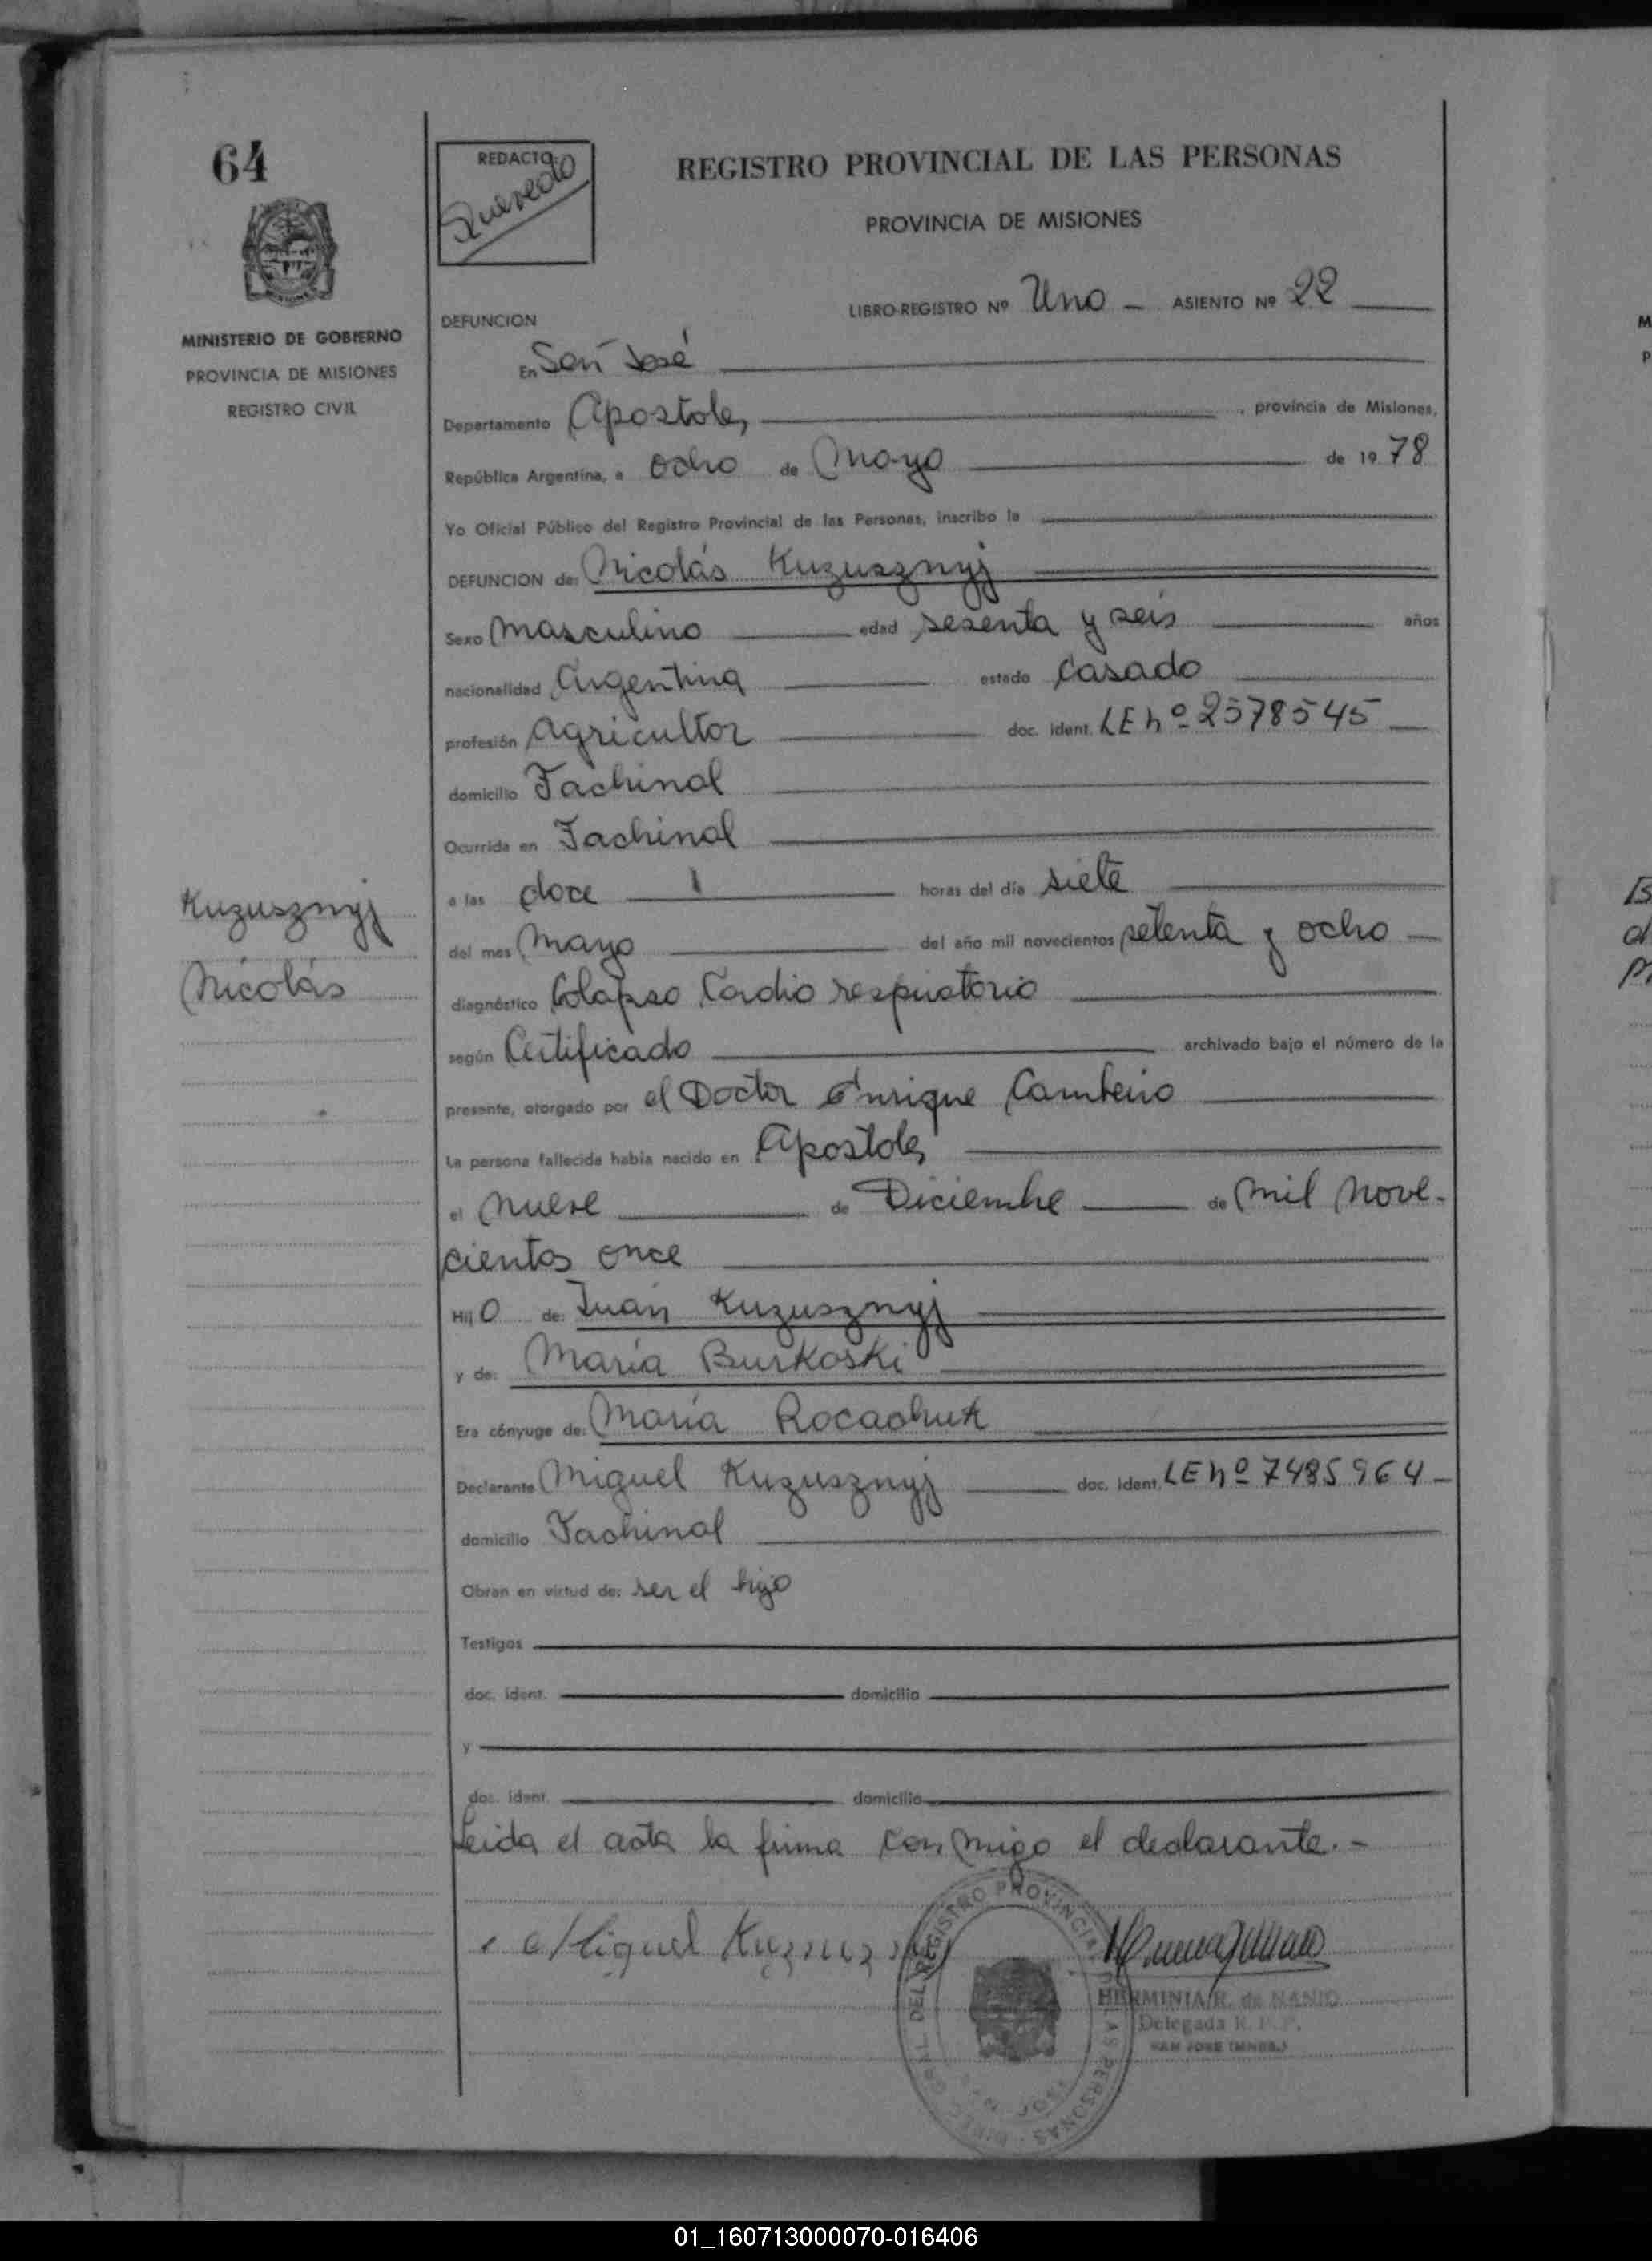 64
REDACTO:
Quevedo
REGISTRO PROVINCIAL DE LAS PERSONAS
PROVINCIA DE MISIONES
MINISTERIO DE GOBIERNO
PROVINCIA DE MISIONES
REGISTRO CIVIL
LIBRO-REGISTRO Nº Uno — ASIENTO Nº 22
DEFUNCION
En San José
Departamento Apostoles , provincia de Misiones,
República Argentina, a ocho de Mayo de 1978
Yo Oficial Público del Registro Provincial de las Personas, inscribo la
DEFUNCION de: Nicolás Kuzusznyj
Sexo Masculino edad sesenta y seis años
nacionalidad Argentina estado Casado
profesión Agricultor doc. ident. LE nº 2578545
domicilio Fachinal
Ocurrida en Fachinal
a las doce horas del día siete
del mes Mayo del año mil novecientos setenta y ocho
diagnóstico Colapso Cardio respiratorio
según Certificado archivado bajo el número de la
presente, otorgado por el Doctor Enrique Camberio
La persona fallecida había nacido en Apostoles
el nueve de Diciembre de Mil Nove-
cientos once
Hij o de: Juan Kuzusznyj
y de: María Burkoski
Era cónyuge de: María Rocachuk
Declarante Miguel Kuzusznyj doc. ident. LE nº 7485964
domicilio Fachinal
Obran en virtud de: ser el hijo
Testigos
doc. ident. domicilio
y
doc. ident. domicilio
Leida el acta la firma conmigo el declarante.-
Kuzusznyj
Nicolás
Miguel
HERMINIA R. de NANIO
Delegada R. P. P.
SAN JOSE (MNES.)
01_160713000070-016406